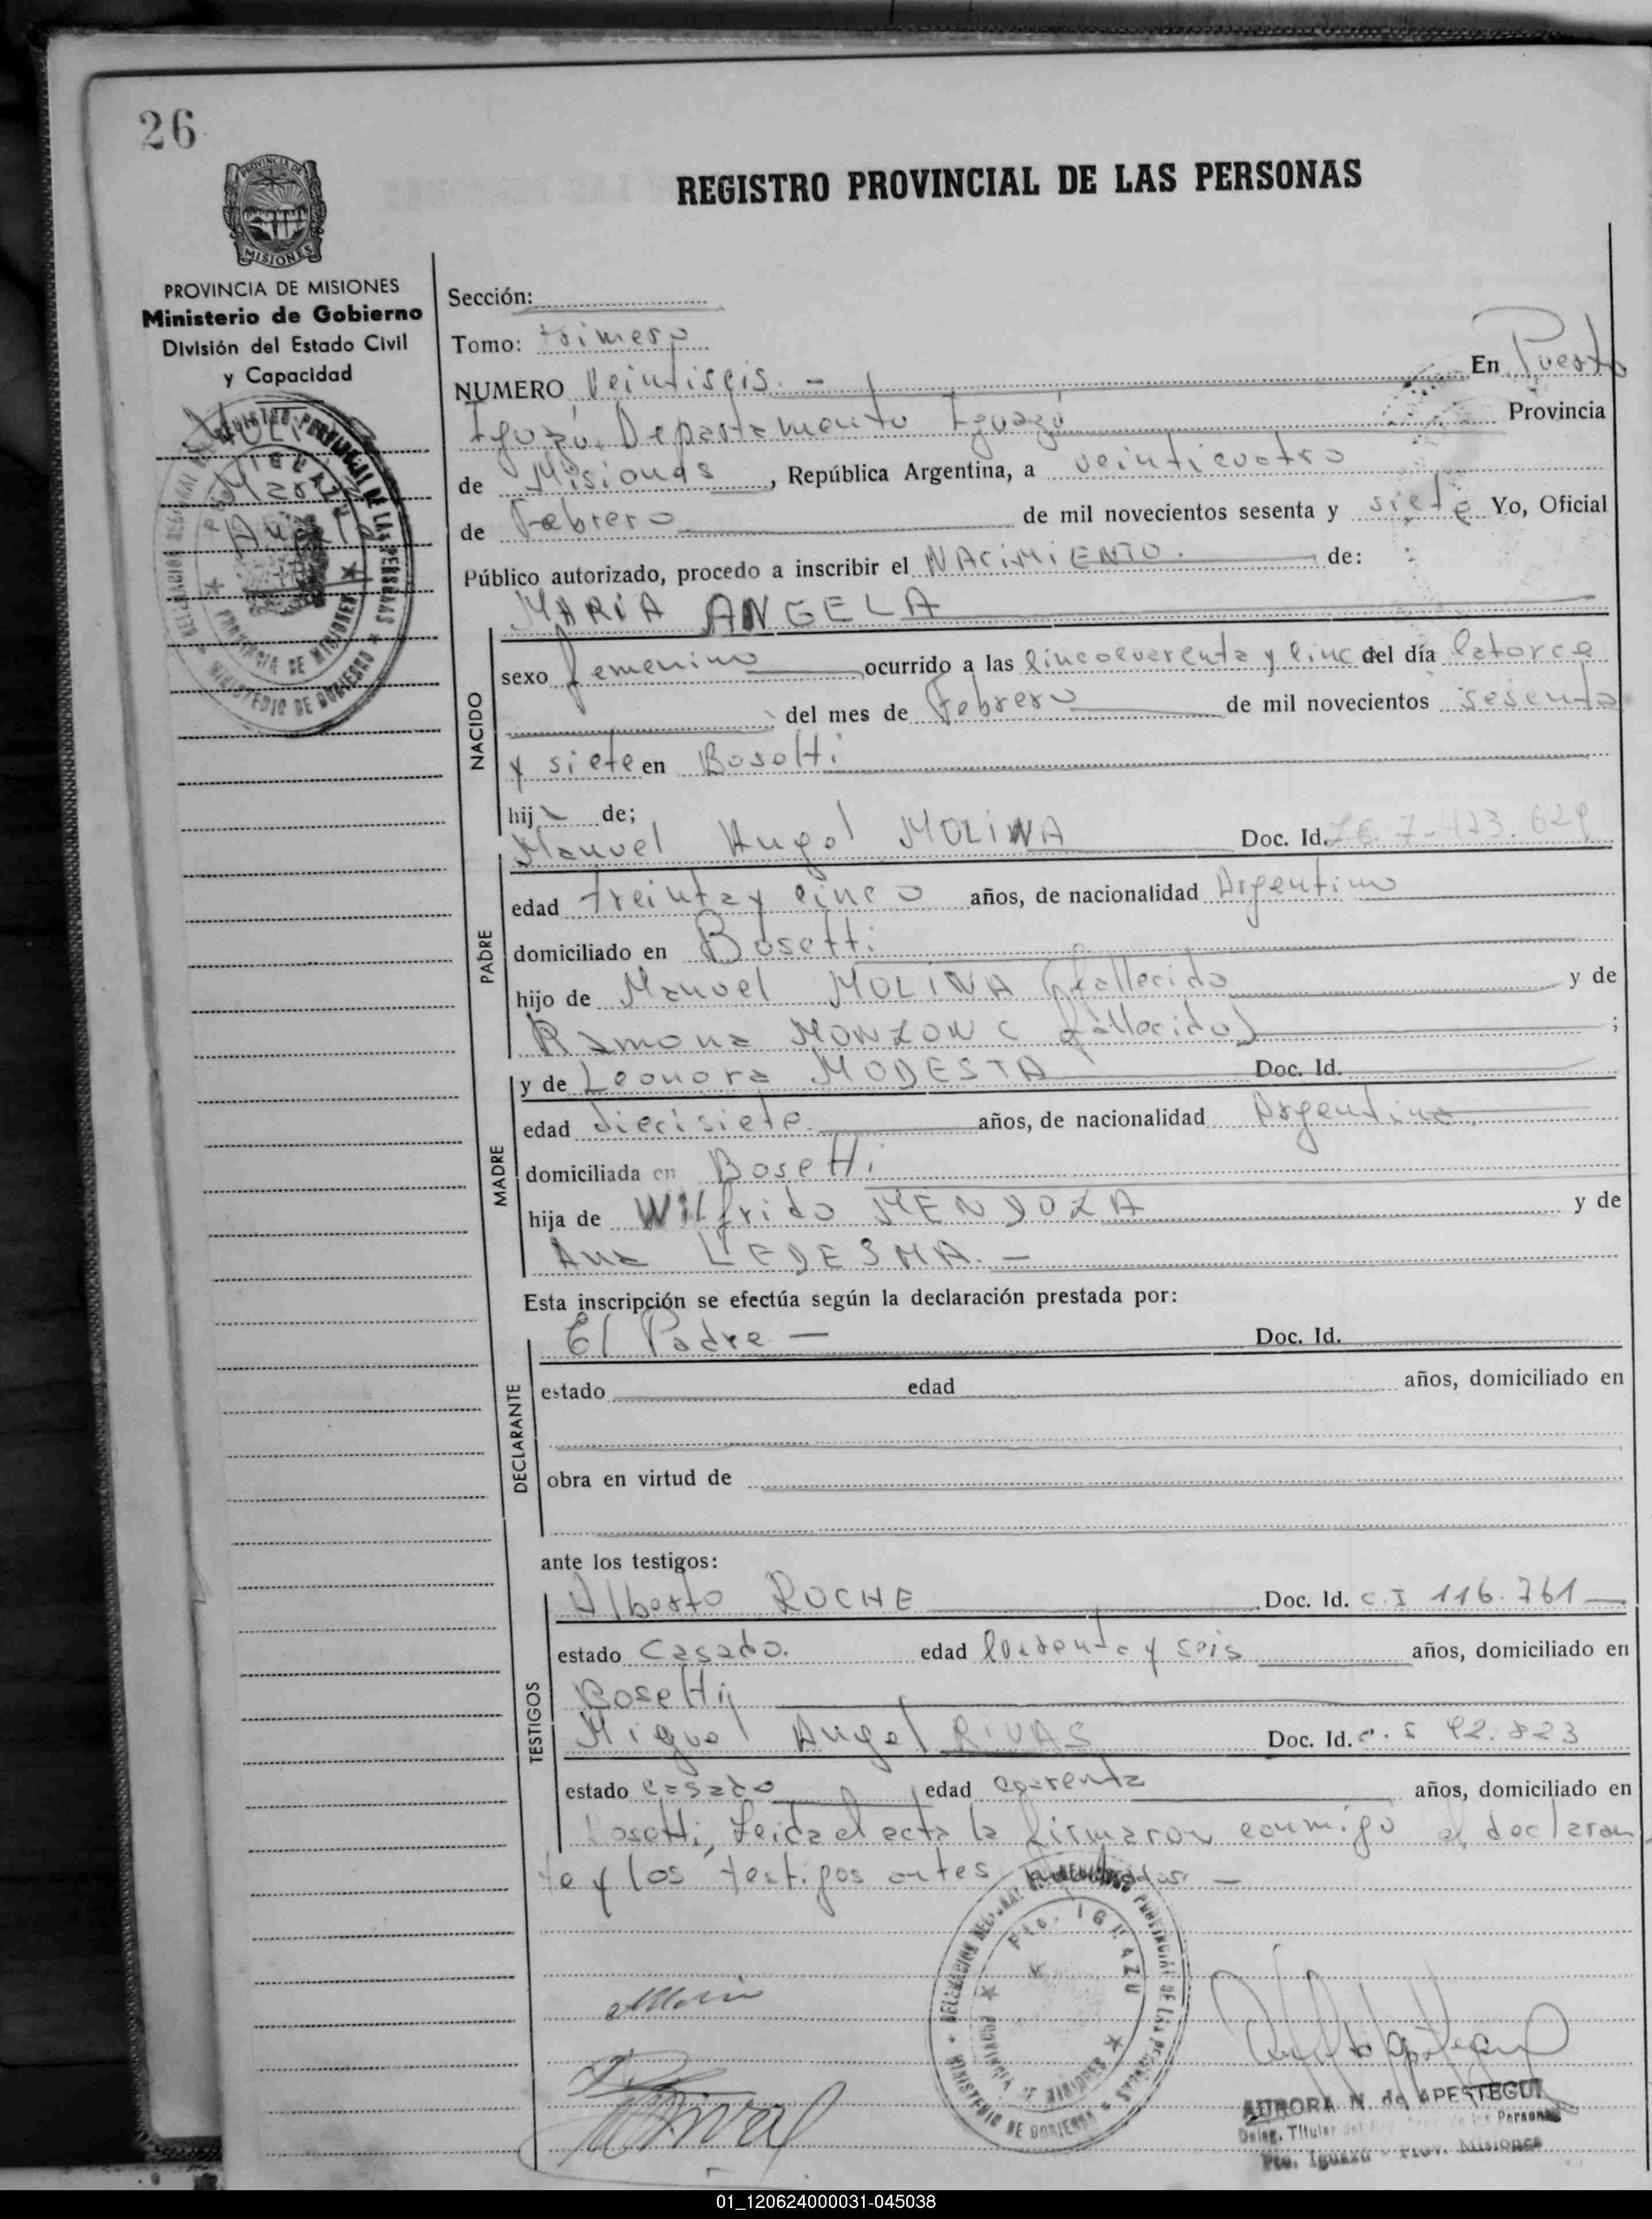 26
PROVINCIA DE
MISIONES
REGISTRO PROVINCIAL DE LAS PERSONAS
PROVINCIA DE MISIONES
Ministerio de Gobierno
División del Estado Civil
y Capacidad
Sección:
Tomo: primero
NUMERO Veintiseis. - En Puerto
Iguazú. Departamento Iguazú Provincia
de Misiones, República Argentina, a veinticuatro
de Febrero de mil novecientos sesenta y siete Yo, Oficial
Público autorizado, procedo a inscribir el NACIMIENTO. de:
MARIA ANGELA
NACIDO
sexo femenino ocurrido a las del día Catorce
del mes de Febrero de mil novecientos sesenta
y siete en Bosetti
hij de;
PADRE
Manuel Angel MOLINA Doc. Id. 7.473.629
edad treinta y cinco años, de nacionalidad Argentino
domiciliado en Bosetti
hijo de Manuel MOLINA (fallecido y de
Ramona MONZON ( fallecida) ;
MADRE
y de Leonora MODESTA Doc. Id.
edad diecisiete. años, de nacionalidad Argentina
domiciliada en Bosetti
hija de Wilfrido MENDOZA y de
Ana LEDESMA. -
Esta inscripción se efectúa según la declaración prestada por:
DECLARANTE
El Padre - Doc. Id.
estado edad años, domiciliado en
obra en virtud de
ante los testigos:
TESTIGOS
Alberto ROCHE Doc. Id. C.I 116.761
estado Casado. edad y seis años, domiciliado en
Bosetti
Miguel Angel RIVAS Doc. Id. 92.823
estado casado edad años, domiciliado en
Bosetti, Leida el acta la firmaron conmigo el declaran
te y los testigos antes -
Pto. IGUAZU
PROVINCIA DE MISIONES
MINISTERIO DE GOBIERNO
AURORA N. de APESTEGUI
Deleg. Titular del
Pto. Iguazú - Prov. Misiones
01_120624000031-045038